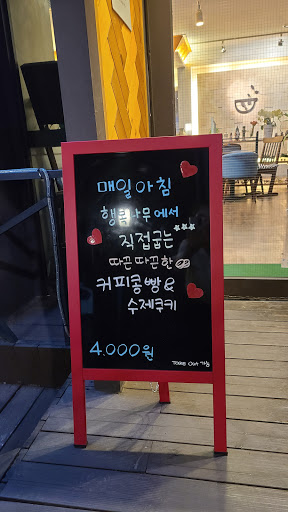 매일아침
행복나무에서
직접굽는
따끈따끈한
커피콩빵&
수제쿠키
4.000원
Take Out 가능